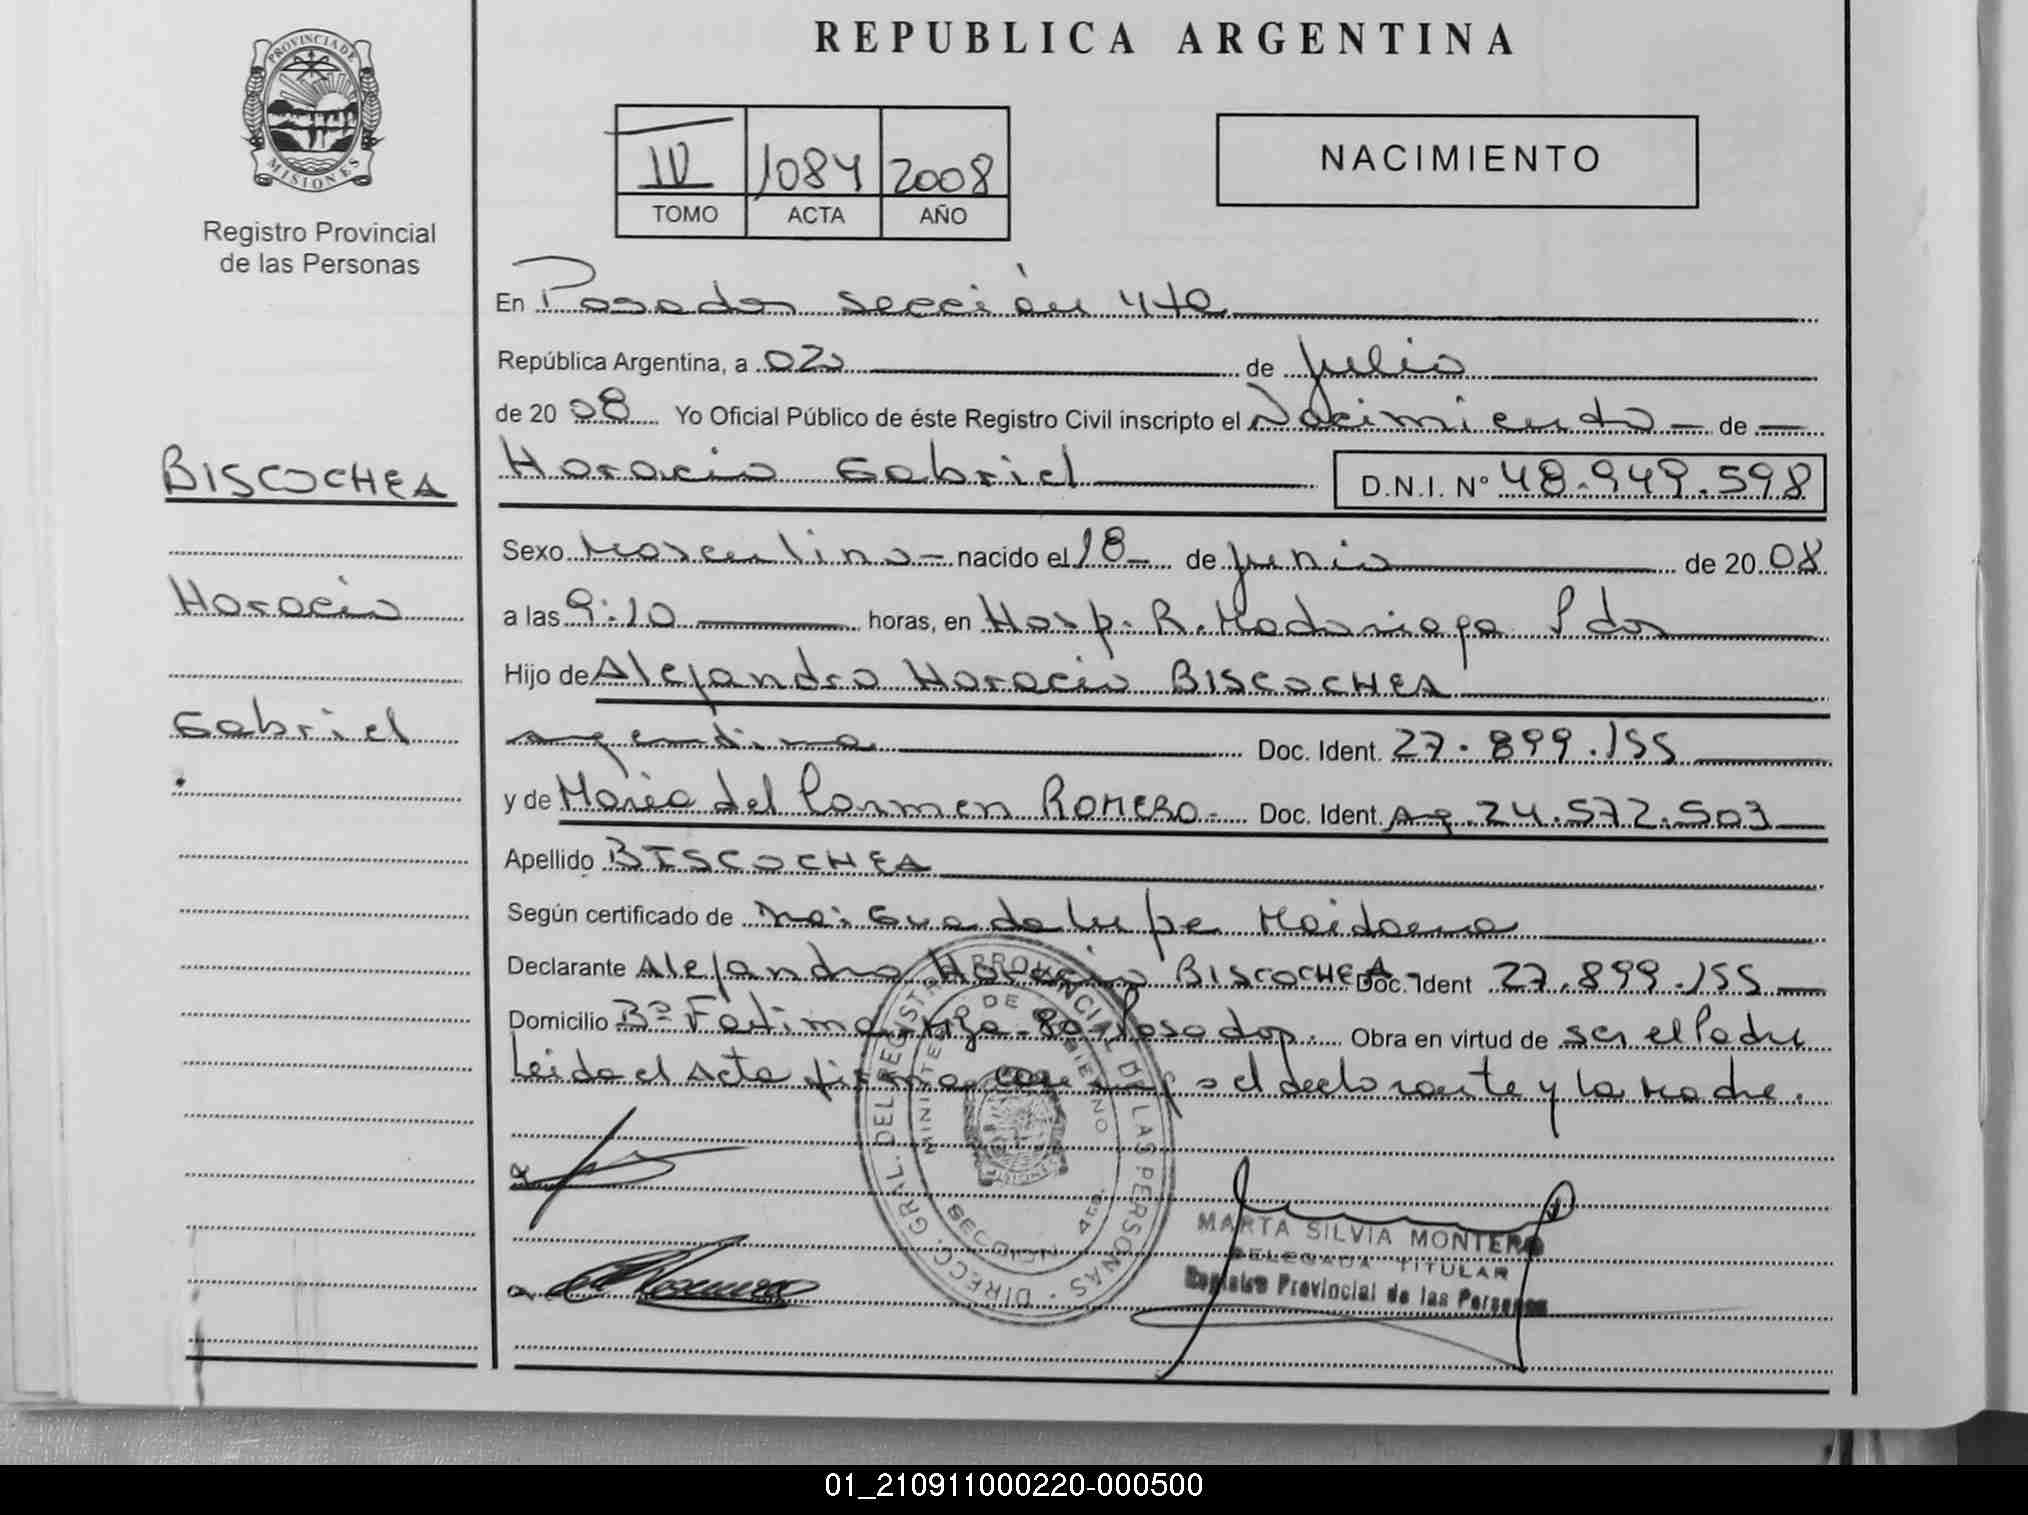 REPUBLICA ARGENTINA
PROVINCIA DE
MISIONES
Registro Provincial
de las Personas
IV 1084 2008
TOMO ACTA AÑO
NACIMIENTO
En Posadas sección 4ta
República Argentina, a 02 de julio
de 2008 Yo Oficial Público de éste Registro Civil inscripto el Nacimiento de
BISCOCHEA
Horacio Gabriel D.N.I. Nº 48.949.598
Sexo Masculino nacido el 18 de junio de 2008
Horacio
a las 9:10 horas, en Hosp. R. Madariaga Pdas
Hijo de Alejandro Horacio BISCOCHEA
Gabriel
argentina Doc. Ident. 27.899.155
y de María del Carmen ROMERO.- Doc. Ident. Arg. 24.572.503
Apellido BISCOCHEA
Según certificado de Guadalupe Maidana
Declarante Alejandro Horacio BISCOCHEA- Doc. Ident 27.899.155
Domicilio Bº Fátima Mza-80-Posadas. Obra en virtud de ser el Padre
Leida el Acta firma conmigo el declarante y la Madre.
DIRECC. GRAL. DEL REGISTRO PROVINCIAL DE LAS PERSONAS
MINISTERIO DE GOBIERNO
SECCION 4ta.
MISIONES
MARTA SILVIA MONTERO
DELEGADA TITULAR
Registro Provincial de las Personas
01_210911000220-000500